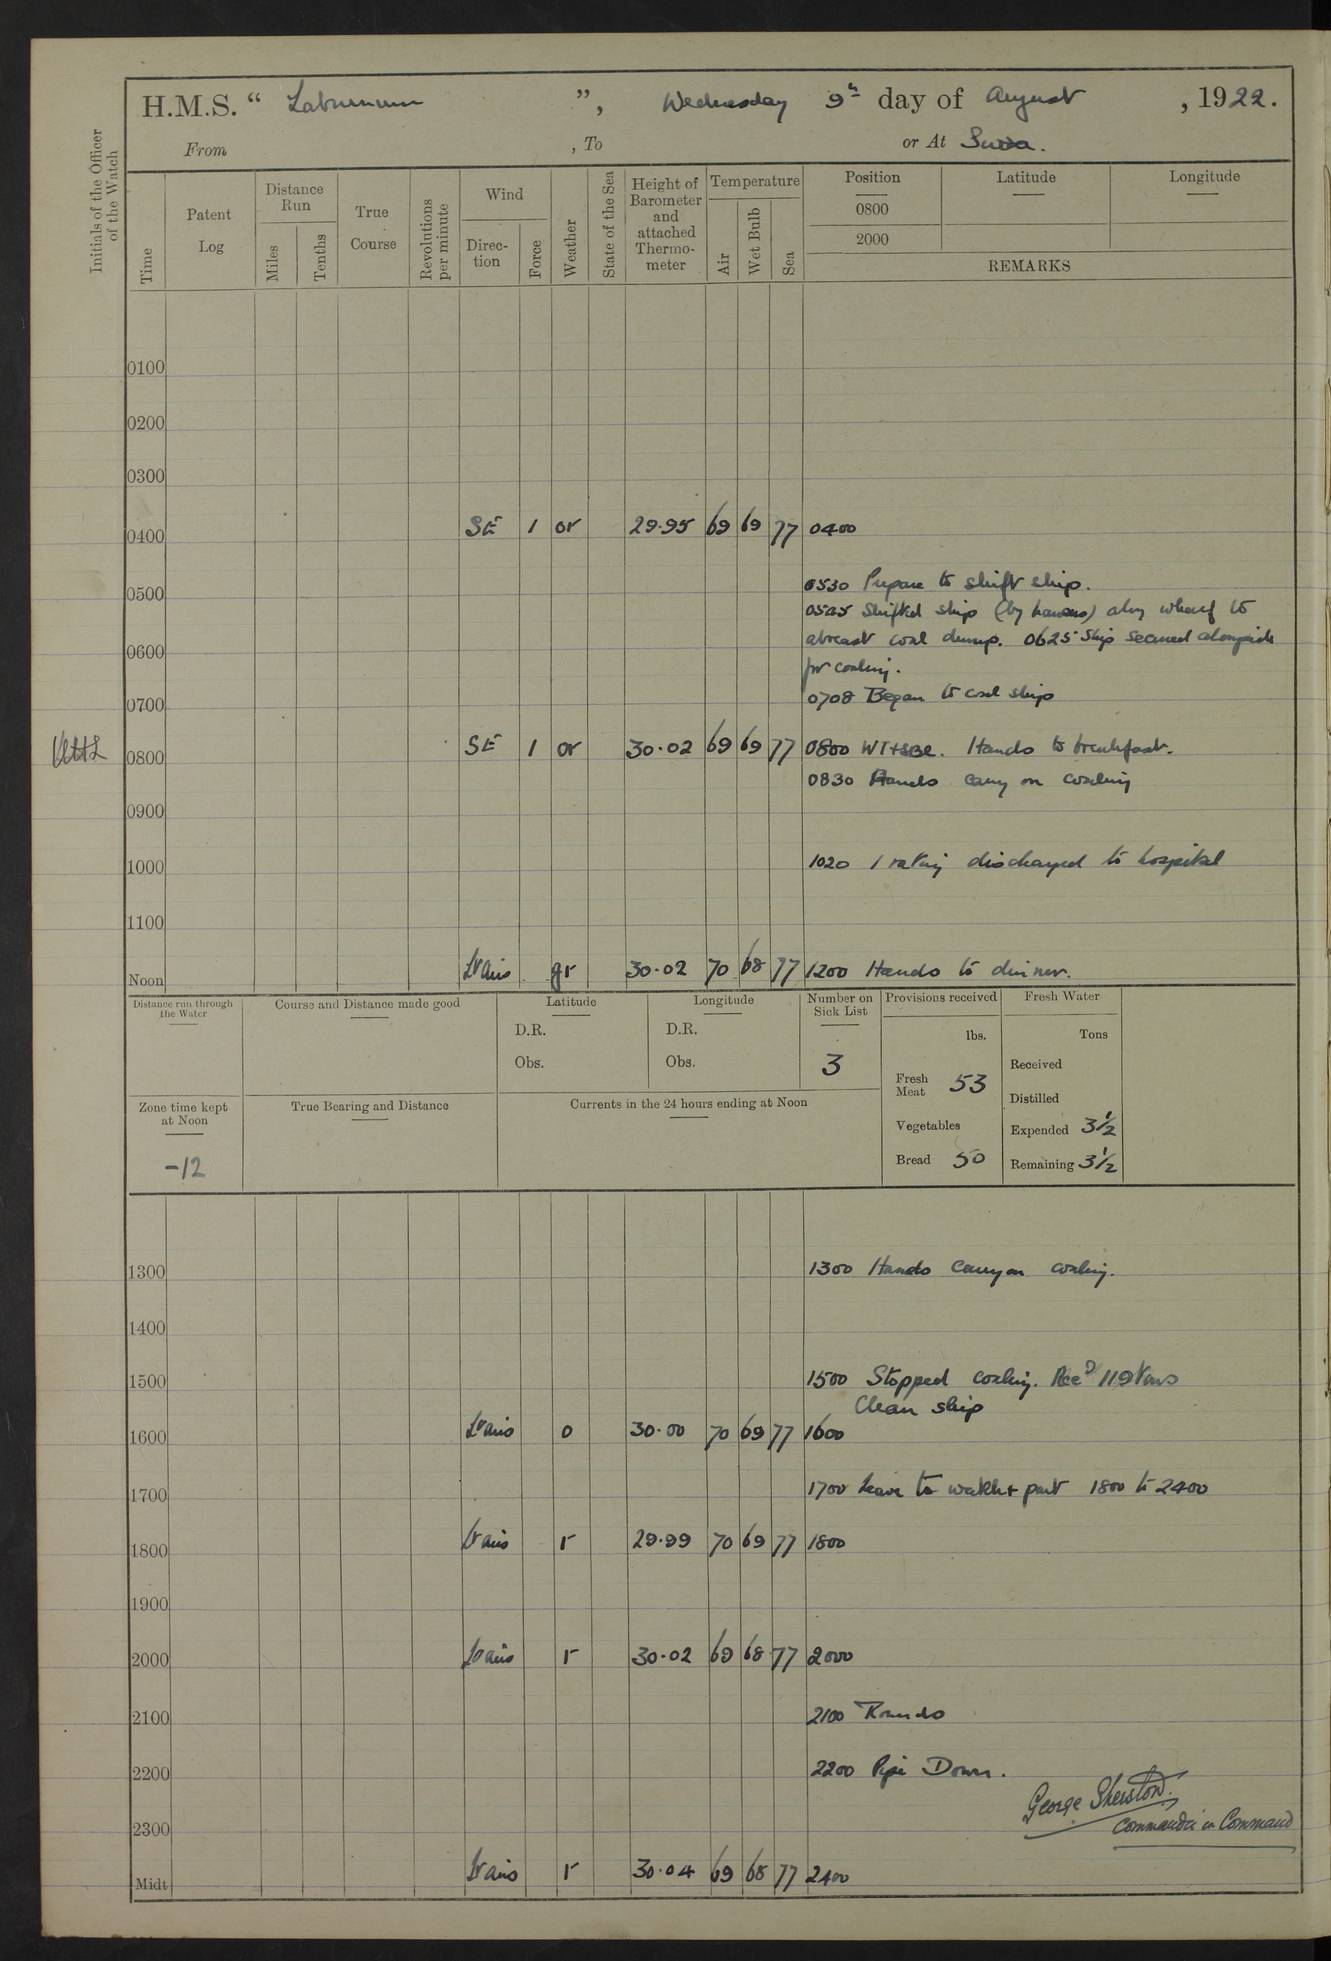 H.M.S. “ Laburnum ”, Wednesday 9th day of August , 1922.
From , To or At Suva.
Initials of the Officer of the Watch
Time
Patent Log
Distance Run
Miles
Tenths
True Course
Revolutions per minute
Wind
Direc- tion
Force
Weather
State of the Sea
Height of Barometer and attached Thermo- meter
Temperature
Air
Wet Bulb
Sea
Position Latitude Longitude
0800
2000
REMARKS
0100
0200
0300
0400 SE 1 or 29.95 69 69 77 0400
0530 Prepare to shift ship.
0500
0545 Shifted ship (by hawsers) along wharf to
abreast coal dump. 0625 Ship secured alongside
0600
for coaling.
0708 Began to coal ship
0700
0800 SE 1 or 30.02 69 69 77 0800 Hands to breakfast.
0830 Hands carry on coaling
0900
1000 1020 1 rating discharged to hospital
1100
Noon Lt airs gr 30.02 70 68 77 1200 Hands to dinner.
Distance run through the Water
Course and Distance made good
Latitude
D.R.
Obs.
Longitude
D.R.
Obs.
Number on Sick List
3
Provisions received
lbs.
Fresh Meat 53
Vegetables
Bread 50
Fresh Water
Tons
Received
Distilled
Expended 3½
Remaining 3½
Zone time kept at Noon
-12
True Bearing and Distance
Currents in the 24 hours ending at Noon
1300 1300 Hands carry on coaling.
1400
1500 1500 Stopped coaling. Recd 119 tons
Clean ship
1600 Lt airs o 30.00 70 69 77 1600
1700 1700 Leave to watch & part 1800 to 2400
1800 Lt airs r 29.99 70 69 77 1800
1900
2000 Lt airs r 30.02 69 68 77 2000
2100 2100 Rounds
2200 2200 Pipe Down.
George Sherston.
2300 Commander in Command
Midt Lt airs r 30.04 69 68 77 2400